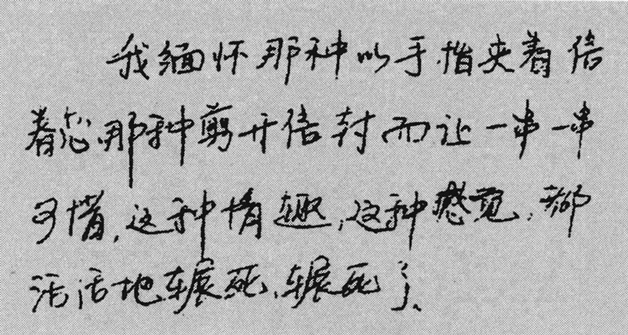 我缅怀那种以手指夹着信
着您那种剪开信封而让一串一串
可惜,这种情趣,这种感觉,都
活活地辗死、辗死了、